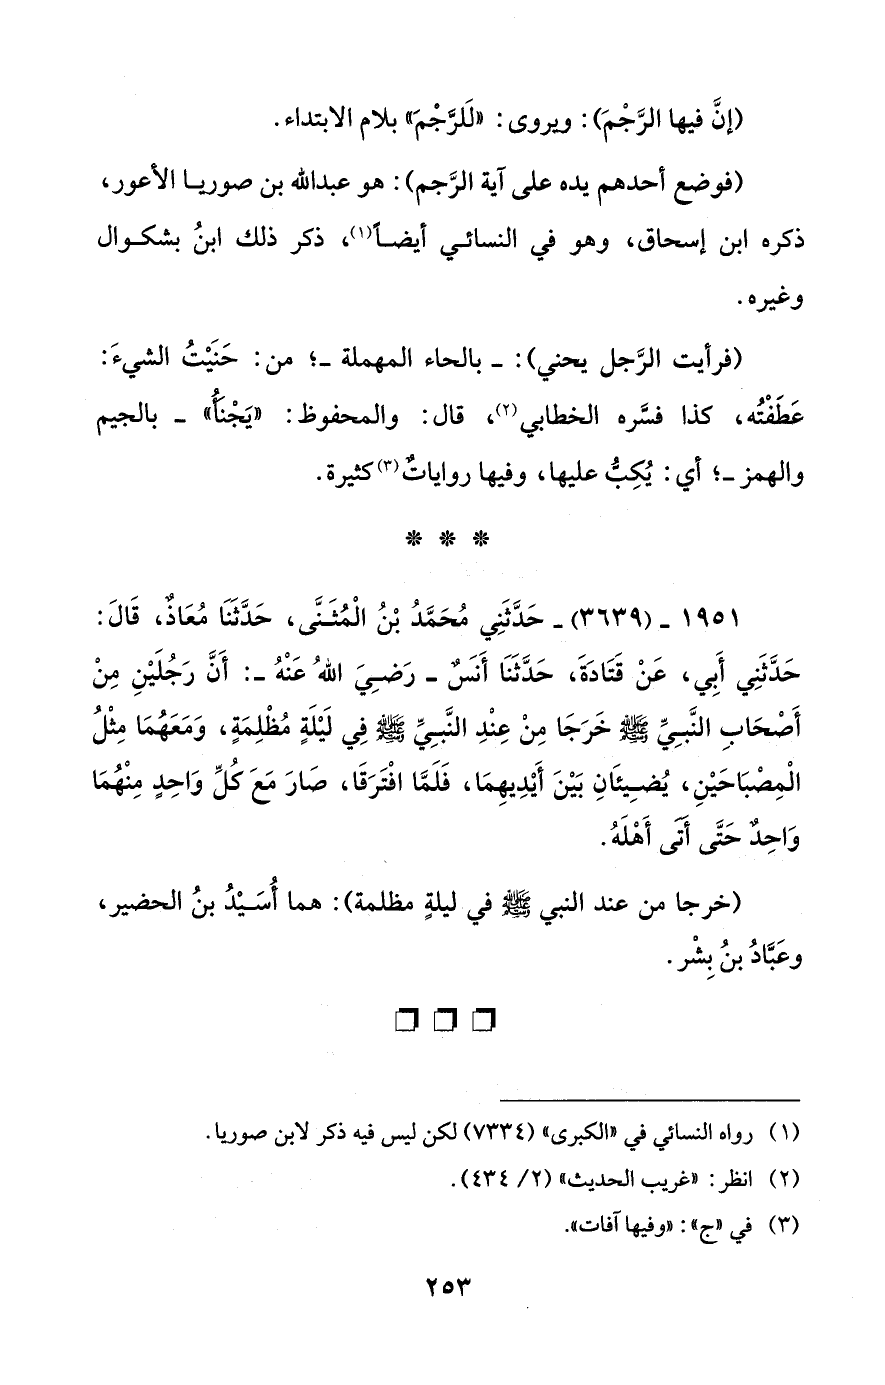 (إنَّ فيها الرَّجْمَ): ويروى: «لَلرَّجْمَ» بلام الابتداء.
(فوضع أحدهم يده على آية الرَّجم): هو عبدالله بن صوريا الأعور،
ذكره ابن إسحاق، وهو في النسائي أيضاً(١)، ذكر ذلك ابنُ بشكوال
وغيره.
(فرأيت الرَّجل يحني): ـ بالحاء المهملة ـ؛ من: حَنَيْتُ الشيءَ:
عَطَفْتُه، كذا فسَّره الخطابي(٢)، قال: والمحفوظ: «يَجْنَأُ» ـ بالجيم
والهمز ـ؛ أي: يُكِبُّ عليها، وفيها رواياتٌ(٣) كثيرة.
* * *
١٩٥١ ـ (٣٦٣٩) ـ حَدَّثَنِي مُحَمَّدُ بْنُ الْمُثَنَّى، حَدَّثَنَا مُعَاذٌ، قَالَ:
حَدَّثَنِي أَبِي، عَنْ قَتَادَةَ، حَدَّثَنَا أَنَسٌ ـ رَضِيَ اللهُ عَنْهُ ـ: أَنَّ رَجُلَيْنِ مِنْ
أَصْحَابِ النَّبِيِّ ﷺ خَرَجَا مِنْ عِنْدِ النَّبِيِّ ﷺ فِي لَيْلَةٍ مُظْلِمَةٍ، وَمَعَهُمَا مِثْلُ
الْمِصْبَاحَيْنِ، يُضِيئَانِ بَيْنَ أَيْدِيهِمَا، فَلَمَّا افْتَرَقَا، صَارَ مَعَ كُلِّ وَاحِدٍ مِنْهُمَا
وَاحِدٌ حَتَّى أَتَى أَهْلَهُ.
(خرجا من عند النبي ﷺ في ليلةٍ مظلمة): هما أُسَيْدُ بنُ الحضير،
وعَبَّادُ بنُ بِشْر.
❒ ❒ ❒
(١) رواه النسائي في «الكبرى» (٧٣٣٤) لكن ليس فيه ذكر لابن صوريا.
(٢) انظر: «غريب الحديث» (٢/ ٤٣٤).
(٣) في «ج»: «وفيها آفات».
٢٥٣